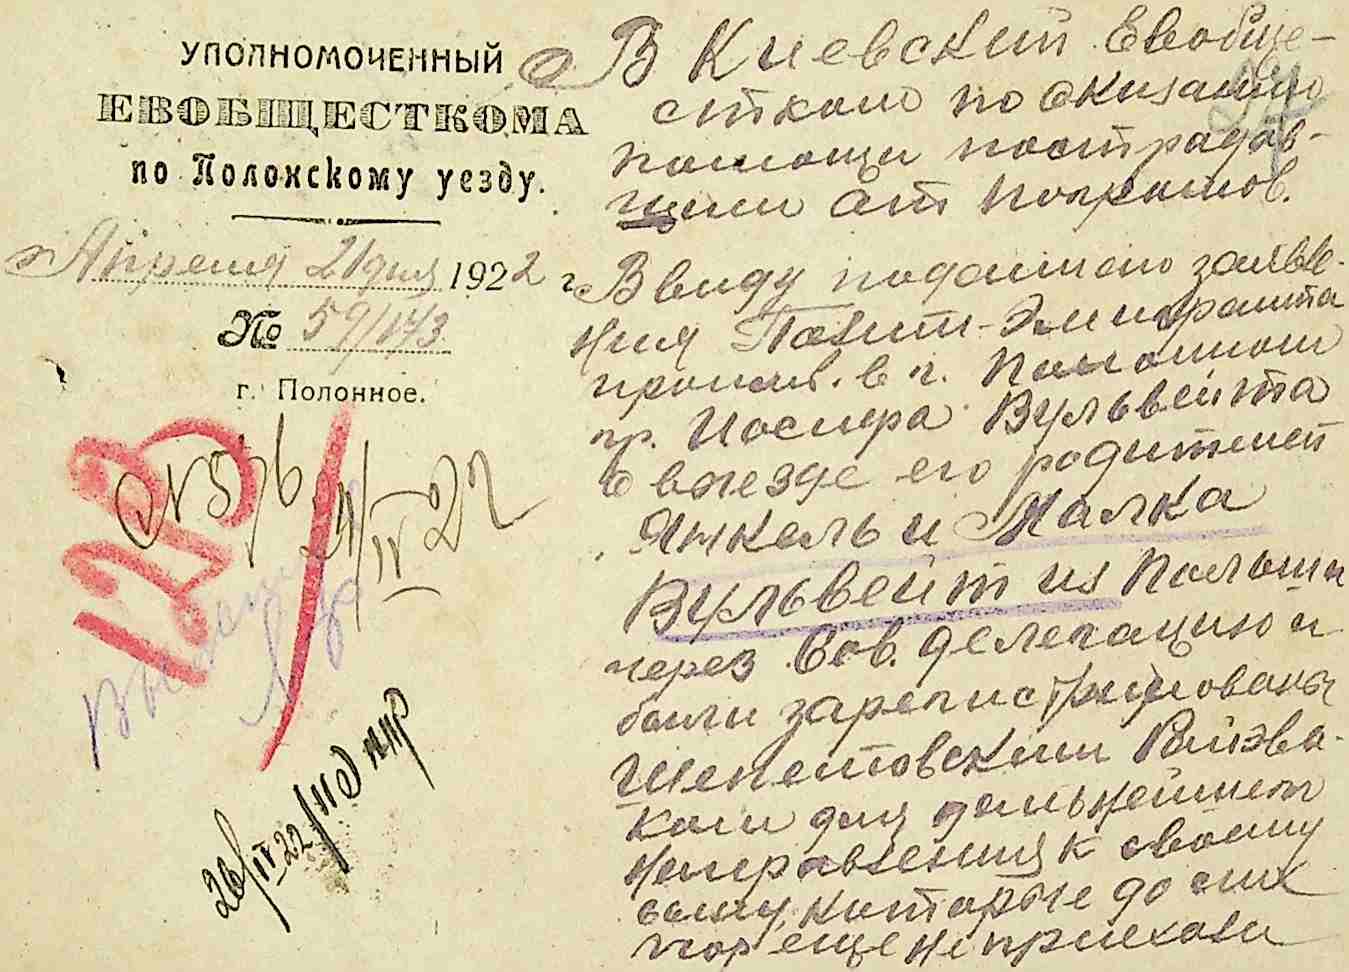 УПОЛНОМОЧЕННЫЙ
ЕВОБЩЕСТКОМА
по Полонскому уезду.
Апреля 21 дня 1922 г.
№ 59/173
г. Полонное.
123
N 576
21/IV 22
26/IV 22
В Киевский Евобще-
стком по оказанию
помощи пострадав-
шим от погромов.
Ввиду поданного заявле-
ния Полит-Эмигранта
прожив. в г. Полонном
гр. Иосифа Вульвейта
о въезде его родителей
Янкель и Малка
Вульвейт из Польши
через Сов. делегацию и
были зарегистрированы
Шепетовским Райэва-
ком для дальнейшего
направления к своему
сыну, которые до сих
пор еще не приехали